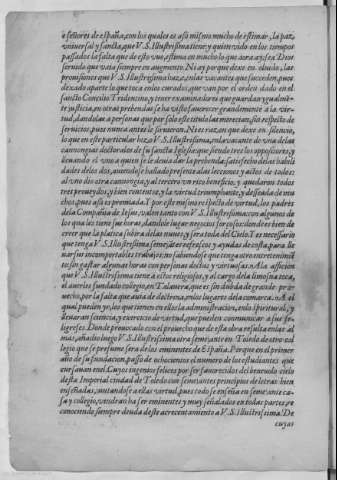 e señores de España, con los quales es assi mismo mucho de estimar, la paz
vniuersal y sancta, que V.S. Illustrissima tiene; y quien vido en los tiempos
passados la falta que de esto vuo, estima en mucho lo que aora ay; sea Dios
seruido que vaya siempre en augmento. Ni ay porque dexe en oluido, las
prouisiones que V.S. Illustrissima haze, en las vacantes que succeden, pues
dexado aparte lo que toca en los curados, que van por el orden dado en el
sancto Concilio Tridentino, y tener examinadores que guardan ygualmen
te justicia, en otras prebendas se ha visto fauorescer grandemente a la vir
tud, dandolas a personas que por solo este titulo las merescian, sin respecto de
seruicios, pues nunca antes le siruieron. Ni es razon que dexe en silencio,
lo que en este particular hizo V.S. Illustrissima, en la vacante de vna de las
canongias doctorales de su sancta Iglesia: que siendo tres los oppositores, y
lleuando el vno a quien se le deuia dar la prebenda; satisfecho de las habili
dades de los dos, auiendose hallado presente a las lecciones y actos de todos:
al vno dio otra canongia, y al tercero vn rico beneficio, y quedaron todos
tres proueydos, y bien contentos, y la virtud triumphante, y desseada de mu
chos, pues assi es premiada. Y por este mismo respecto de virtud, los padres
de la Compañia de Iesus, valen tanto con V.S. Illustrissima: con algunos de
los quales tiene sus horas, dando le lugar negocios forçosos: donde es bien de
creer que la platica subira de las nuues, y sera toda del Cielo. Y es necessario
que tenga V.S. Illustrissima semejantes refrescos y ayudas de costa, para lle
uar sus incomportables trabajos: no sabiendo se que tenga otro entretenimien
to, sin gastar algunas horas con personas doctas, y virtuosas. A la afficion
que V.S. Illustrissima tiene a estos religiosos, y al cargo de la limosna toca,
el auerles fundado collegio, en Talauera, que es sin dubda de grande pro
uecho, por la falta que auia de doctrina, en los lugares de la comarca. A el
qual pueden yr, los que tienen en ellos la administracion, en lo spiritual, y
lleuaran sciencia, y exercicio de virtud, que pueden communicar a sus fe
ligreses. Donde prouocado con el prouecho que de esta obra resulta en las al
mas, añadio luego V.S. Illustrissima otra semejante en Toledo de otro co
legio que se presume sera de los eminentes de España. Porque en el primer
año de su fundacion, passo de ochocientos el numero de los estudiantes que
cursauan en el. Cuyos ingenios felices por ser fauorecidos del beneuolo cielo
desta Imperial ciudad de Toledo con semejantes principios de letras bien
enseñadas, juntandose a ellas virtud, pues todo se enseña en semejante ca
sa y collegio, vendran ha ser eminentes y muy señalados en todas partes, re
conociendo siempre deuda deste acrecentamiento a V.S. Illustrissima. De
cuyas